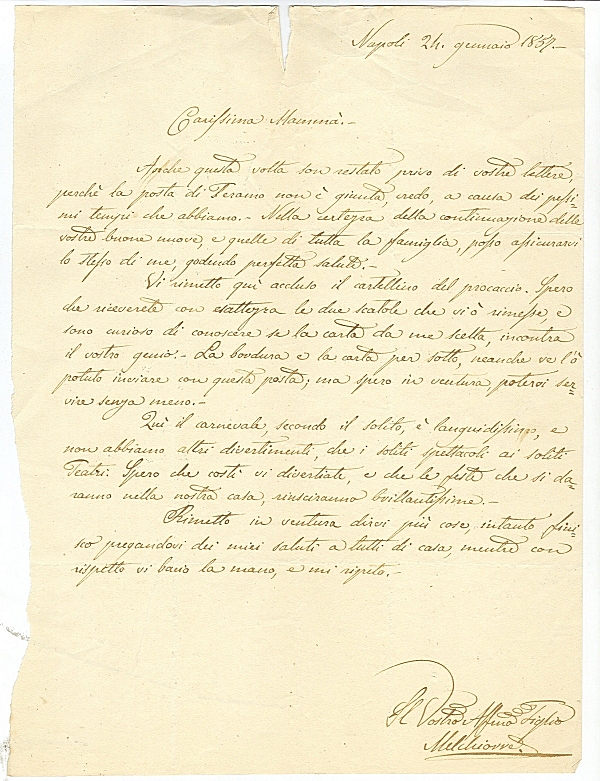 Napoli 24. gennaio 1857.-
Carissima Mammà.-
Anche questa volta son restato privo di vostre lettere,
perchè la posta di Teramo non è giunta, credo, a causa dei pessi-
mi tempi che abbiamo.- Nella certezza della continuazione delle
vostre buone nuove, e quelle di tutta la famiglia, posso assicurarvi
lo stesso di me, godendo perfetta salute.-
Vi rimetto quì accluso il cartellino del procaccio. Spero
che riceverete con esattezza le due scatole che vi ò rimesse e
sono curioso di conoscere se la carta da me scelta, incontra
il vostro genio.- La bordura e la carta per sotto, neanche ve l'ò
potuto inviare con questa posta; ma spero in ventura, potervi ser-
vire senza meno.-
Quì il carnevale, secondo il solito, è languidissimo, e
non abbiamo altri divertimenti, che i soliti spettacoli ai soliti
Teatri. Spero che costì vi divertiate, e che le feste che si da-
ranno nella nostra casa, riusciranno brillantissime.-
Rimetto in ventura dirvi più cose, intanto fini-
sco pregandovi dei miei saluti a tutti di casa, mentre con
rispetto vi bacio la mano, e mi ripeto.-
Il Vostro Affmo Figlio
Melchiorre.